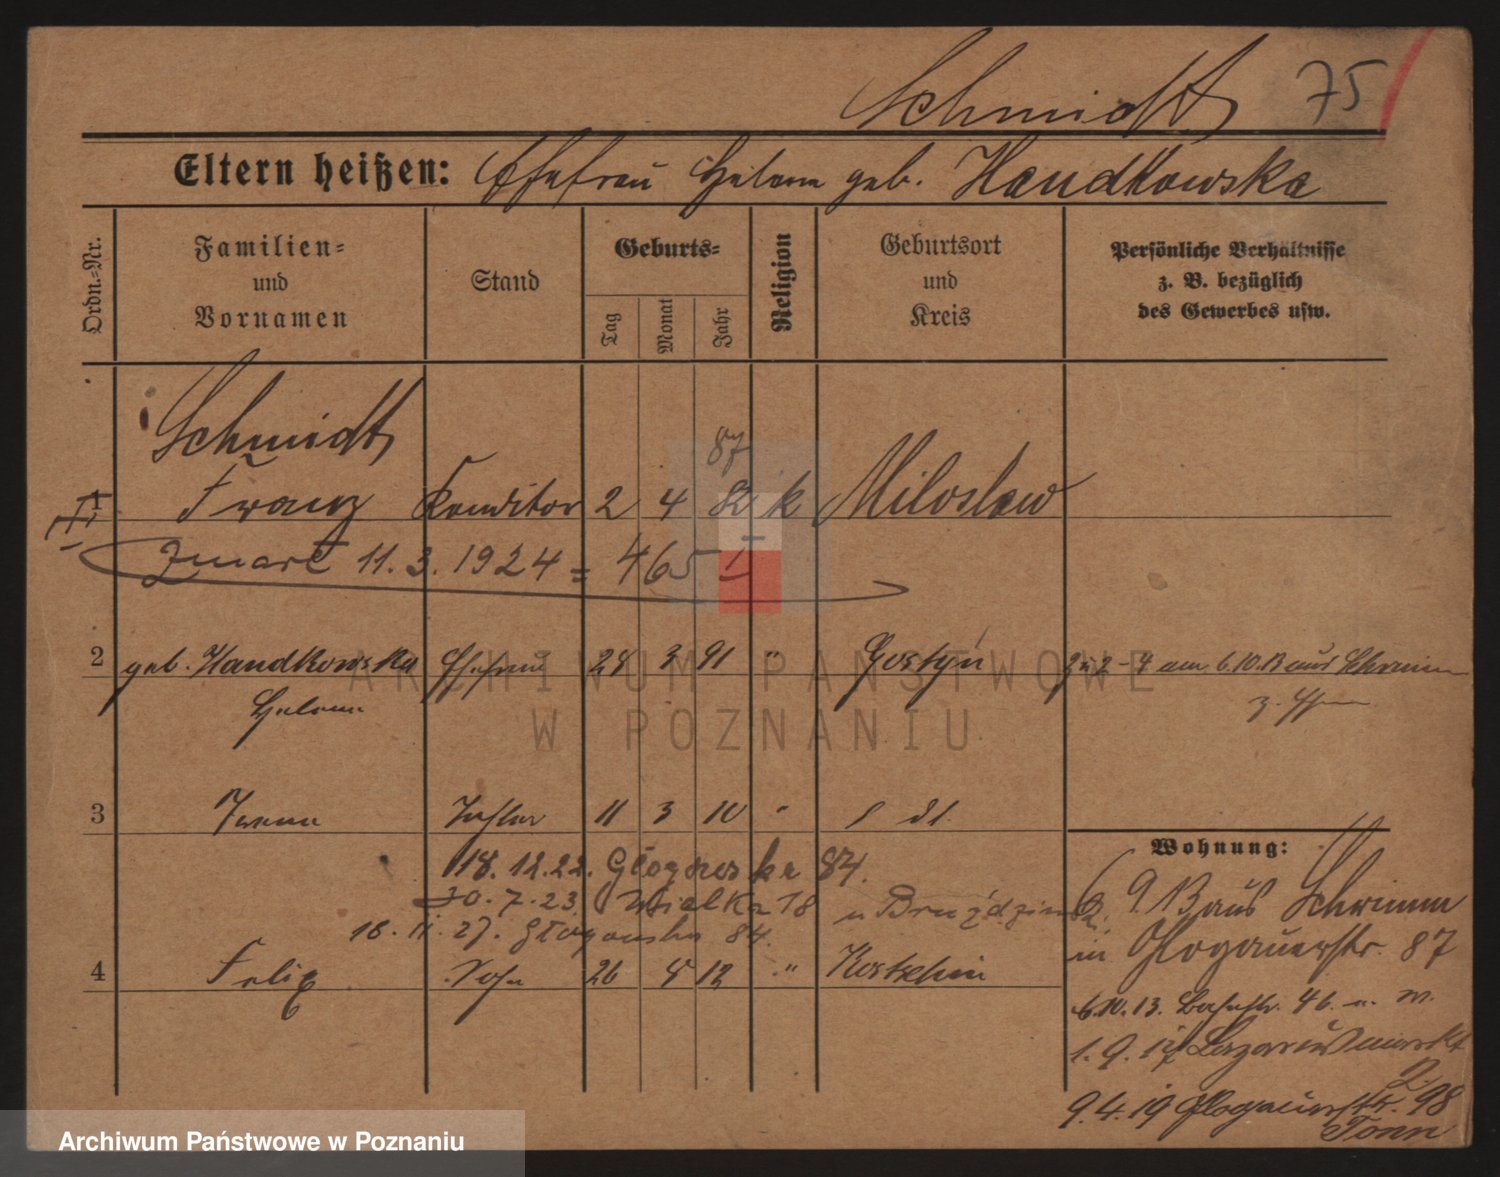 Schmidt 75
Eltern heißen: Ehefrau Helene geb. Handkowska
Ordn.=Nr.
Familien=
und
Vornamen
Stand
Geburts=
Tag
Monat
Jahr
Religion
Geburtsort
und
Kreis
Persönliche Verhältnisse
z. B. bezüglich
des Gewerbes usw.
Schmidt
87
1 Franz Konditor 2 4 82 k Miloslaw
Zmarł 11.3.1924 = 465 I
2 geb. Handkowska Ehefrau 28 3 91 " Gostyń zu 2-4 am 6.10.13 aus Schrimm
Helene
3 Tochter 11 3 10 "
Wohnung:
18.12.22. Głogowska 84.
30.7.23 Wielka 18
18.11.27. Głogowska 84.
9 13 aus Schrimm
in Glogauerstr. 87
4 Felix Sohn 26 8 12 " Kostschin
6.10.13. 46.
1.9.17 Lazarusmarkt
2.
9.4.19 Glogauerstr. 98
ARCHIWUM PAŃSTWOWE
W POZNANIU
Archiwum Państwowe w Poznaniu